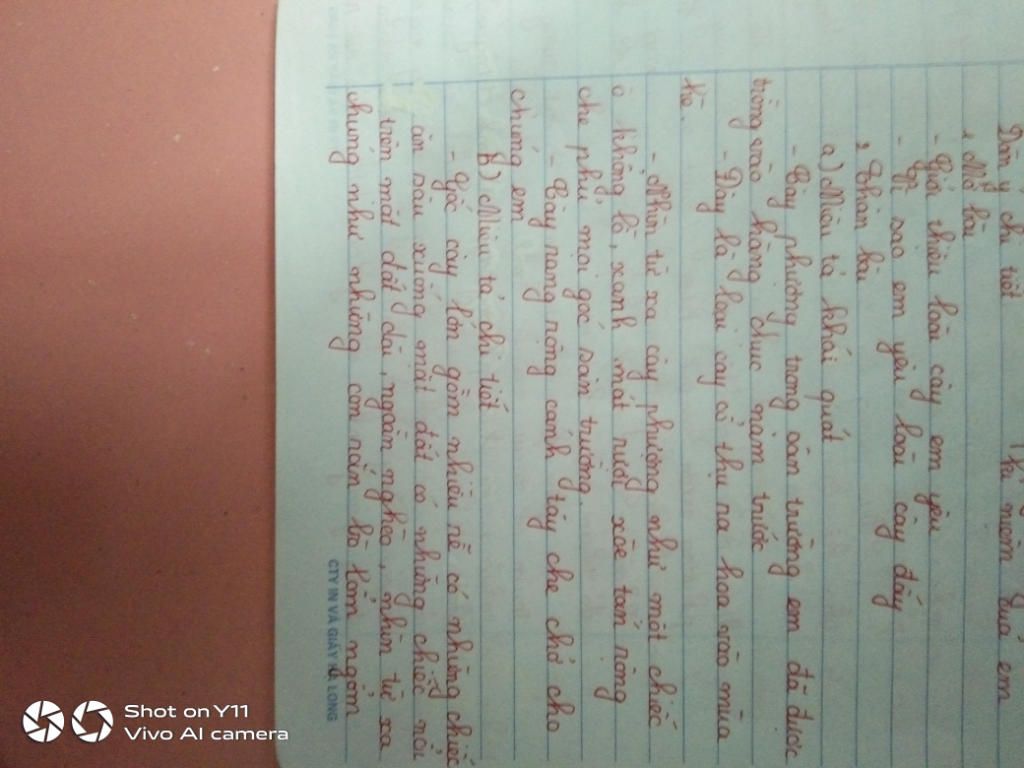 Dàn ý chi tiết
1, Mở bài
- Giới thiệu loài cây em yêu
- Vì sao em yêu loài cây đấy
2, Thân bài
a) Miêu tả khái quát
- Cây phượng trong sân trường em đã được
trồng vào hàng chục năm trước
- Đây là loại cây cổ thụ ra hoa vào mùa
hè.
- Nhìn từ xa cây phượng như một chiếc
ô khổng lồ, xanh mát rượi xòe tán rộng
che phủ mọi góc sân trường.
- Cây rang rộng cánh tay che chở cho
chúng em
b) Miêu tả chi tiết
- Gốc cây lớn gồm nhiều rễ có những chiếc
cắn sâu xuống mặt đất có những chiếc nổi
trên mặt đất dài, ngoằn nghèo, nhìn từ xa
chúng như những con rắn bò lổm ngổm
CTY IN VÀ GIẤY HẠ LONG
Shot on Y11
Vivo AI camera